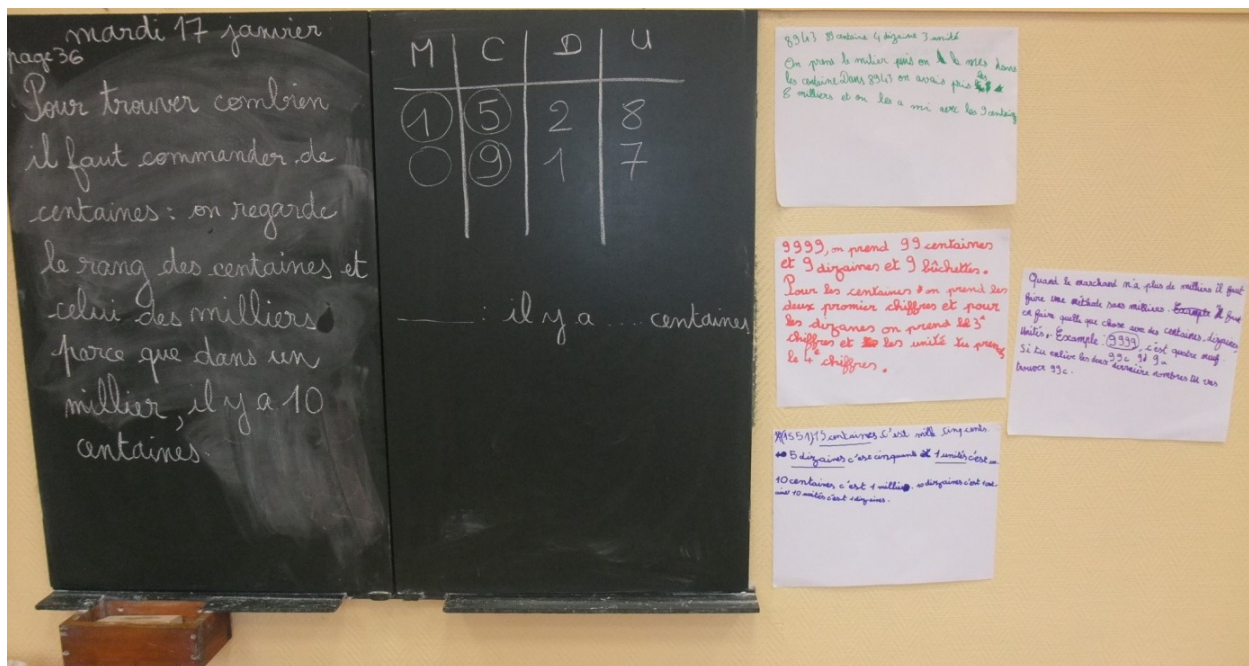 mardi 17 janvier
page 36
Pour trouver combien
il faut commander de
centaines : on regarde
le rang des centaines et
celui des milliers
parce que dans un
millier, il y a 10
centaines.
M C D U
1 5 2 8
9 1 7
____ : il y a .... centaines
8943 4 dizaine 3 unité
On prens le milier puis on le mets dans
les centaine Dans 8943 on avais pris les
8 milliers et on les a mi avec les 9 centaine
9999, on prend 99 centaines
et 9 dizaines et 9 bûchettes.
Pour les centaines on prend les
deux promier chiffres et pour
les dizanes on prend le 3e
chiffres et les unité tu prens
le 4e chiffres.
(1551) 15 centaines c'est mille cinq cents.
5 dizaines c'est cinquante 1 unités c'est
10 centaines c'est 1 millier. 10 dizaines c'est 1
10 unités c'est 1 dizaines.
Quand le marchand n'a plus de milliers il faut
faire une méthode sans milliers. Il faut
en faire quelle que chose avec des centaines, dizaines,
unités. Example : 9999, c'est quatre neuf
99c 9d 9u
Si tu enlève les deux dernière nombres tu vas
trouver 99c.